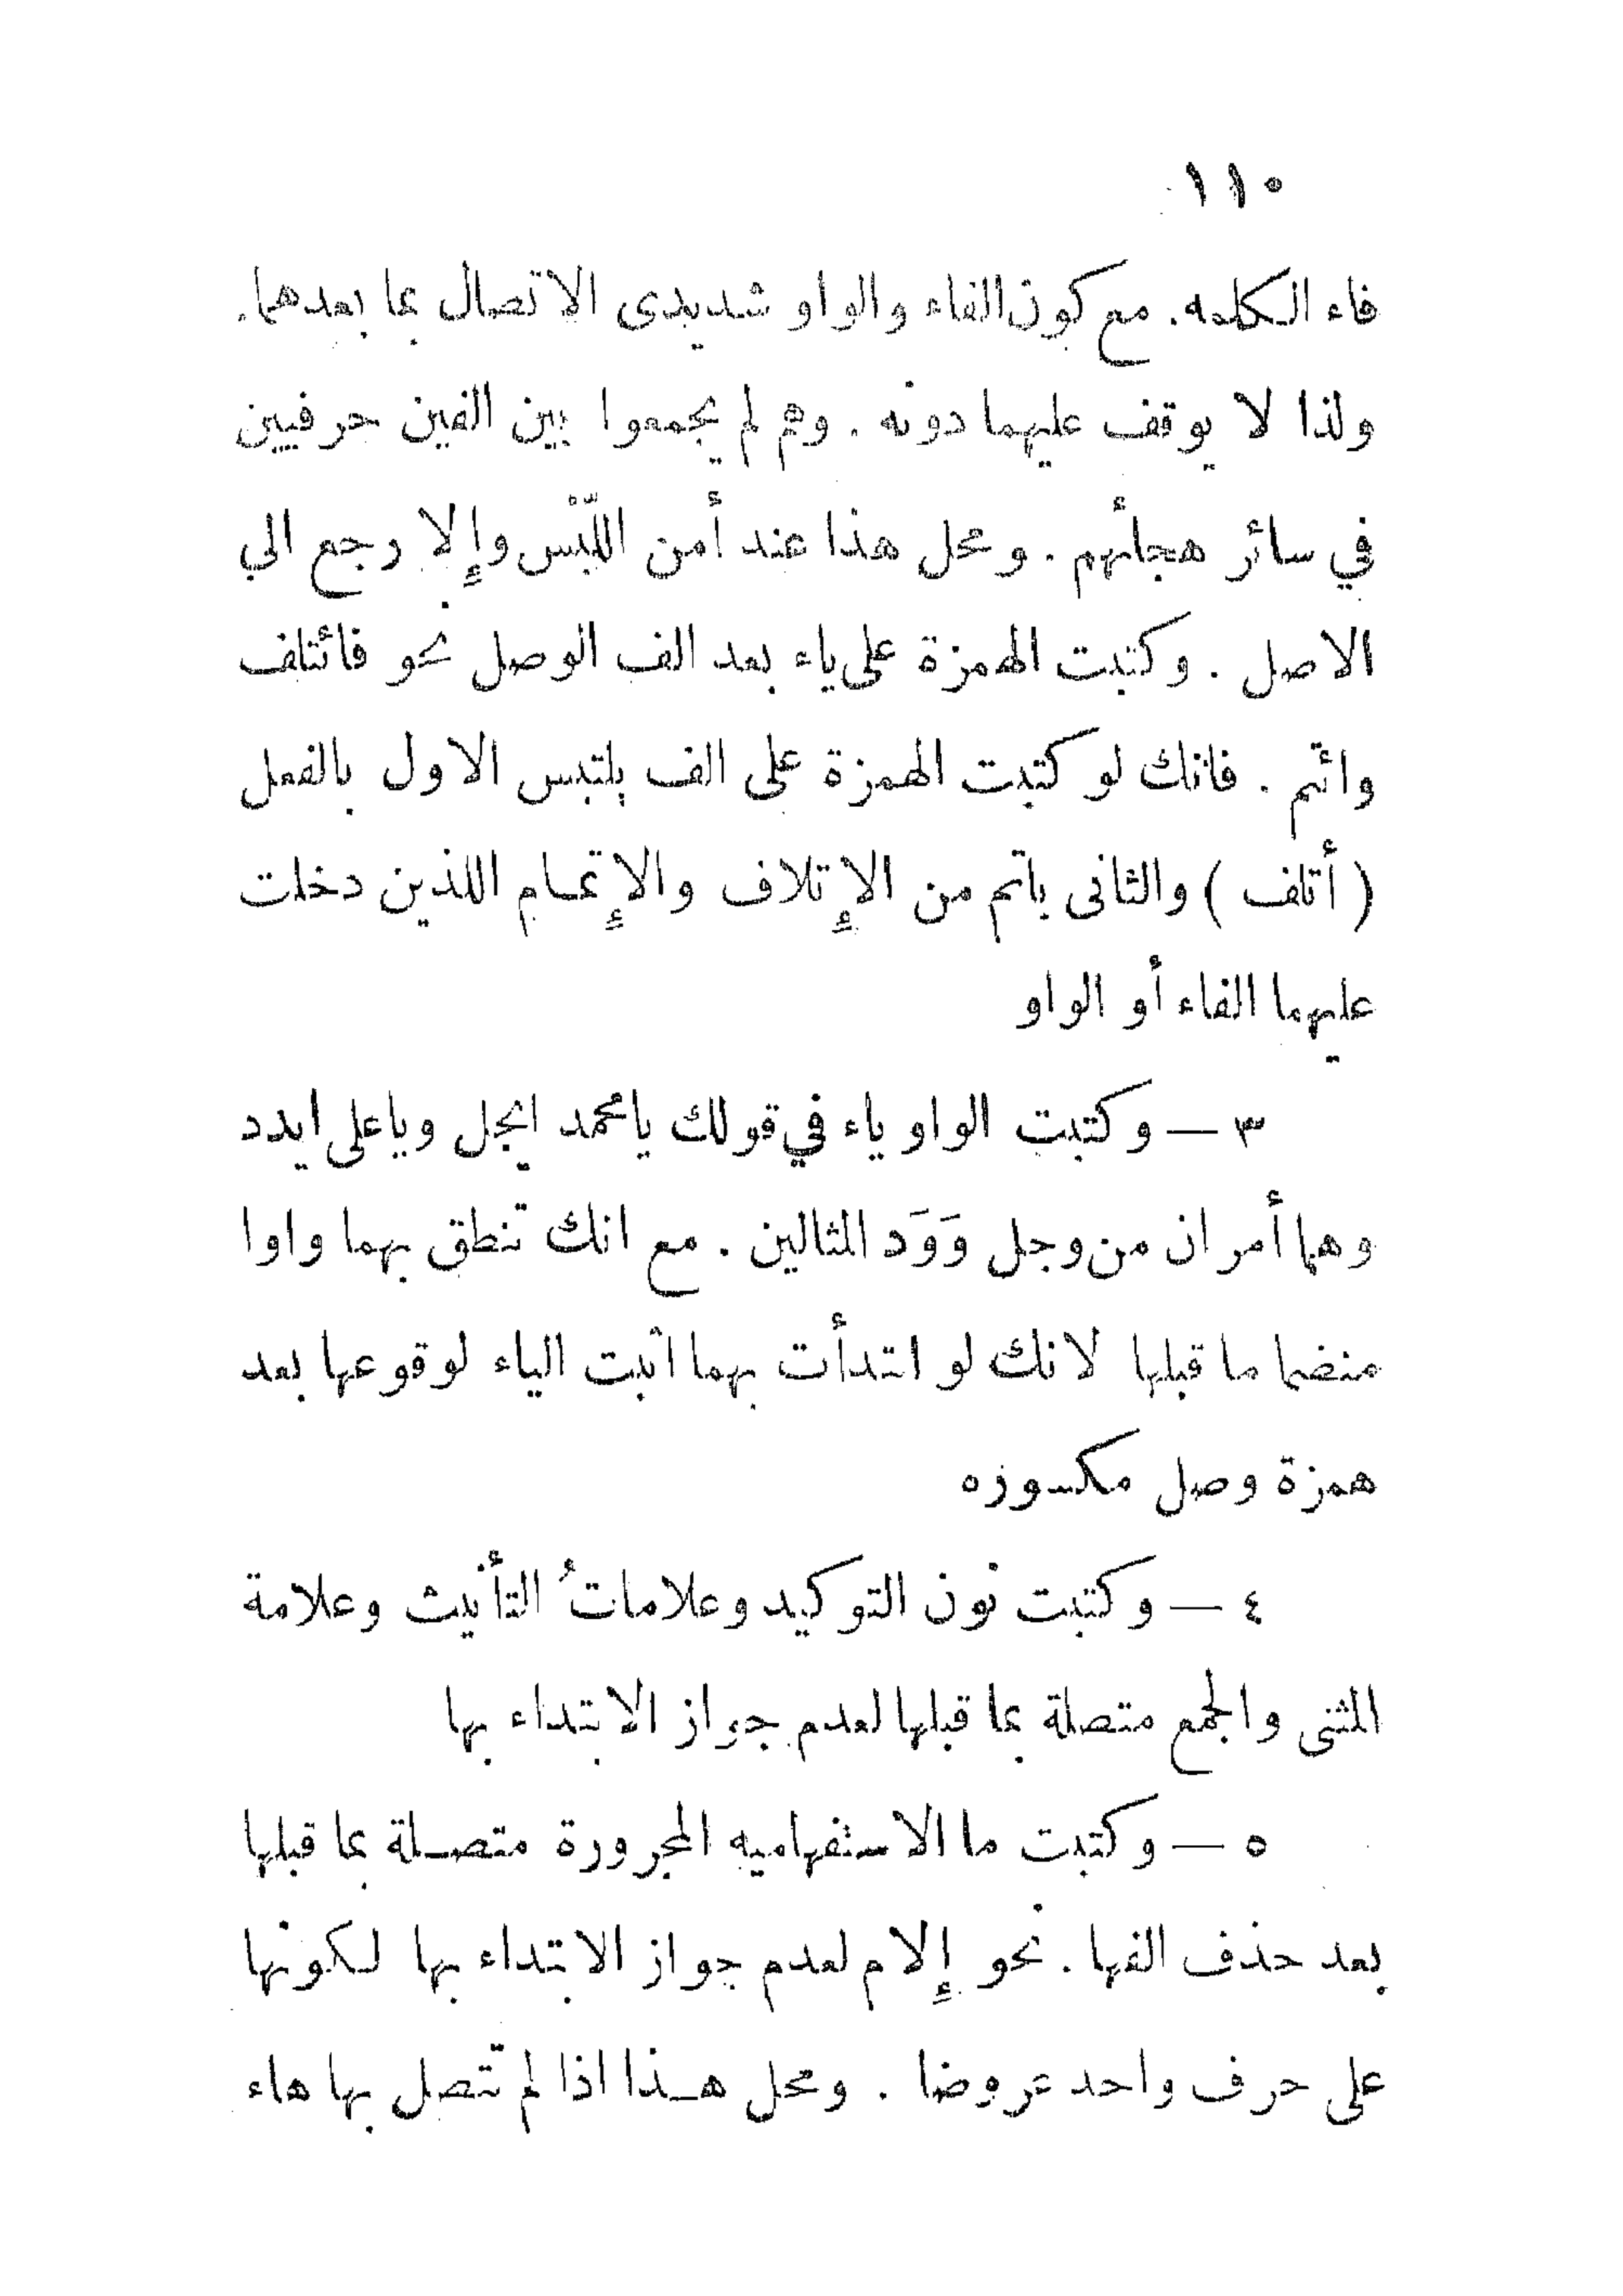 ١١٠
فاء الكلمه. مع كون الفاء والواو شديدى الاتصال بما بعدهما.
ولذا لا يوقف عليهما دونه. وهم لم يجمعوا بين الفين حرفيين
في سائر هجأئهم. ومحل هذا عند أمن اللّبْس وإلا رجع الي
الاصل. وكتبت الهمزة على ياء بعد الف الوصل نحو فائتلف
وائتم. فانك لو كتبت الهمزة على الف يلتبس الاول بالفعل
(أتلف) والثانى باتم من الإتلاف والإتمام اللذين دخلت
عليهما الفاء أو الواو
٣ — وكتبت الواو ياء في قولك يامحمد ايجل وياعلى ايدد
وهما أمران من وجل وَوَد المثالين. مع انك تنطق بهما واوا
منضما ما قبلها لانك لو ابتدأت بهما اثبت الياء لوقوعها بعد
همزة وصل مكسوره
٤ — وكتبت نون التوكيد وعلاماتُ التأنيث وعلامة
المثنى والجمع متصلة بما قبلها لعدم جواز الابتداء بها
٥ — وكتبت ما الاستفهاميه المجرورة متصلة بما قبلها
بعد حذف الفها. نحو إلام لعدم جواز الابتداء بها لكونها
على حرف واحد عروضا. ومحل هذا اذا لم تتصل بها هاء